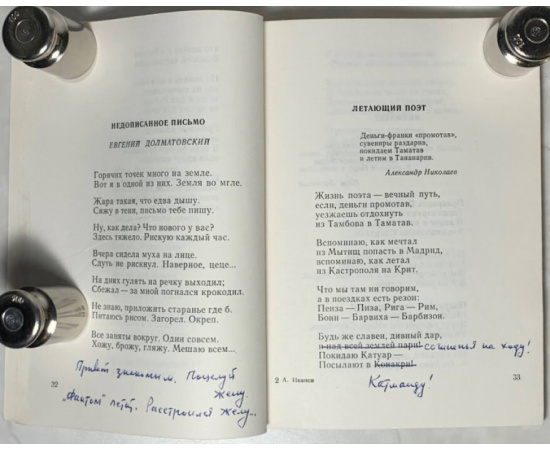 НЕДОПИСАННОЕ ПИСЬМО
ЕВГЕНИЙ ДОЛМАТОВСКИЙ
Горячих точек много на земле.
Вот я в одной из них. Земля во мгле.
Жара такая, что едва дышу.
Сижу в теня, письмо тебе пишу.
Ну, как дела? Что нового у вас?
Здесь тяжело. Рискую каждый час.
Вчера сидела муха на лице.
Сдуть не рискнул. Наверное, цеце...
На днях гулять на речку выходил;
Сбежал — за мной погнался крокодил.
Не знаю, приложить старанье где б.
Питаюсь рисом. Загорел. Окреп.
Все заняты вокруг. Один совсем.
Хожу, брожу, гляжу. Мешаю всем...
Привет знакомым. Поцелуй
жену.
„Фантом" летит. Расстроился
32
ЛЕТАЮЩИЙ ПОЭТ
Деньги-франки «промотав»,
сувениры раздарив,
покидаем Таматав
и летим в Тананарив.
Александр Николаев
Жизнь поэта — вечный путь,
если, деньги промотав,
уезжаешь отдохнуть
из Тамбова в Таматав.
Вспоминаю, как мечтал
из Мытищ попасть в Мадрид,
вспоминаю, как летал
из Кастрополя на Крит.
Что мы там ни говорим,
а в поездках есть резон:
Пенза — Пиза, Рига — Рим,
Бонн — Барвиха — Барбизон.
Будь же славен, дивный дар,
и над всей землей пари! сочиненья на ходу!
Покидаю Катуар —
Посылают в Конакри!
Катманду!
2 А. Иванов 33